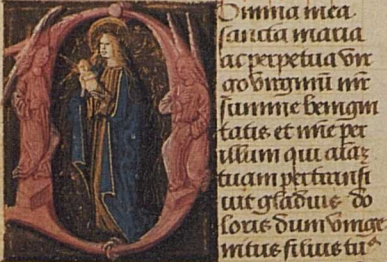 Omina mea
sancta maria
ac perpetua vir
go virginū m̄r
summe benigni
tatis et mīe per
illum qui aīaȝ
tuam pertransi
uit gladius do
loris dum vnige
nitus filius tuꝰ